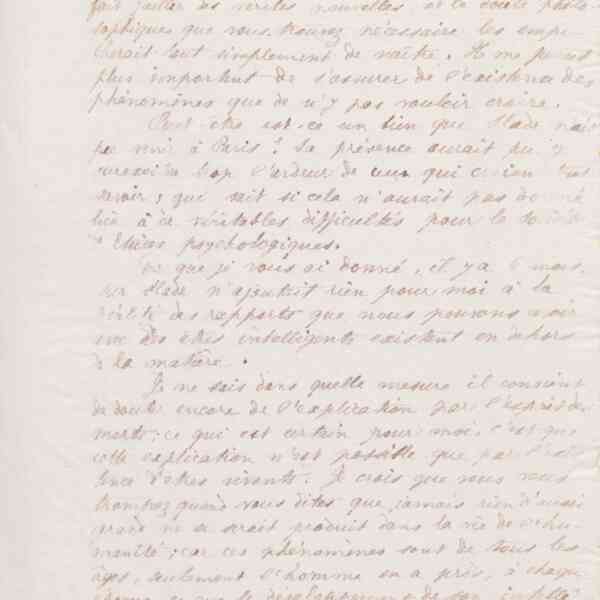 fait jaillir des vérités nouvelles, et le doute philo-
sophiques que vous trouvez nécessaire les empê-
cherait tout simplement de naître. Il me parait
plus important de s'assurer de l'existence des
phénomènes que de n'y pas vouloir croire.
Peut-être est-ce un bien que Slade n'ait
pu venir à Paris? Sa présence aurait pu
surexciter trop l'ardeur de ceux qui croient tout
savoir; qui sait si cela n'aurait pas donné
lieu à de véritables difficultés pour la société
d'Etudes psychologiques.
que je vous ai donné, il y a 6 mois,
sur Slade n'ajoutait rien pour moi à la
réalité des rapports que nous pouvons avoir
avec des êtres intelligents existant en dehors
de la matière.
Je ne sais dans quelle mesure il convient
de douter encore de l'explication par l'esprit des
morts; ce qui est certain pour moi, c'est que
cette explication n'est possible que par l'exis-
tence d'êtres vivants. Je crois que vous vous
trompez quand vous dites que jamais rien d'aussi
grand ne se serait produit dans la vie de l'hu-
manité; car ces phénomènes sont de tous les
âges, seulement l'homme en a pris, à chaque
de son